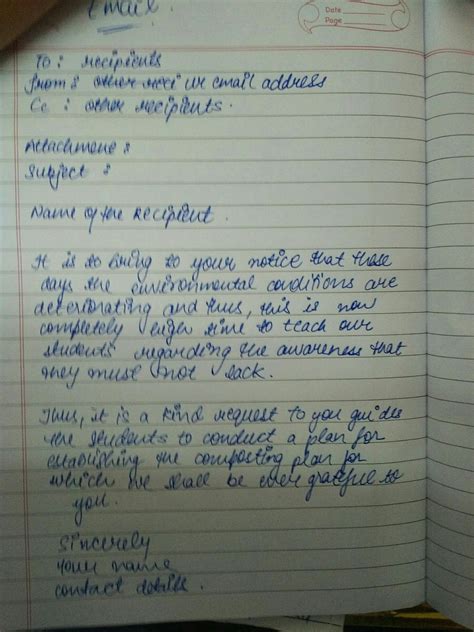 Email
Date
Page
To : recipients
from : other reci ur email address
Cc : other recipients.
Attachment :
Subject :
Name of the Recipient.
It is to bring to your notice that these
days the environmental conditions are
deteriorating and thus, this is now
completely high time to teach our
students regarding the awareness that
they must not lack.
Thus, it is a kind request to you guides
the students to conduct a plan for
establishing the composting plan for
which we shall be ever grateful to
you.
Sincerely
your name
contact details.